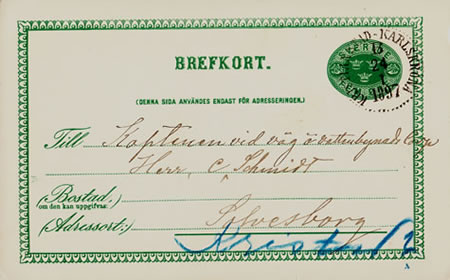 BREFKORT.
SVERIGE
KARLSKRONA
13
24
1
1897
(DENNA SIDA ANVÄNDES ENDAST FÖR ADRESSERINGEN.)
Till Kaptenen vid väg o vattenbyggnads
Herr C Schmidt
(Bostad.
om den kan uppgifvas:)
Adressort:) Sölvesborg
A